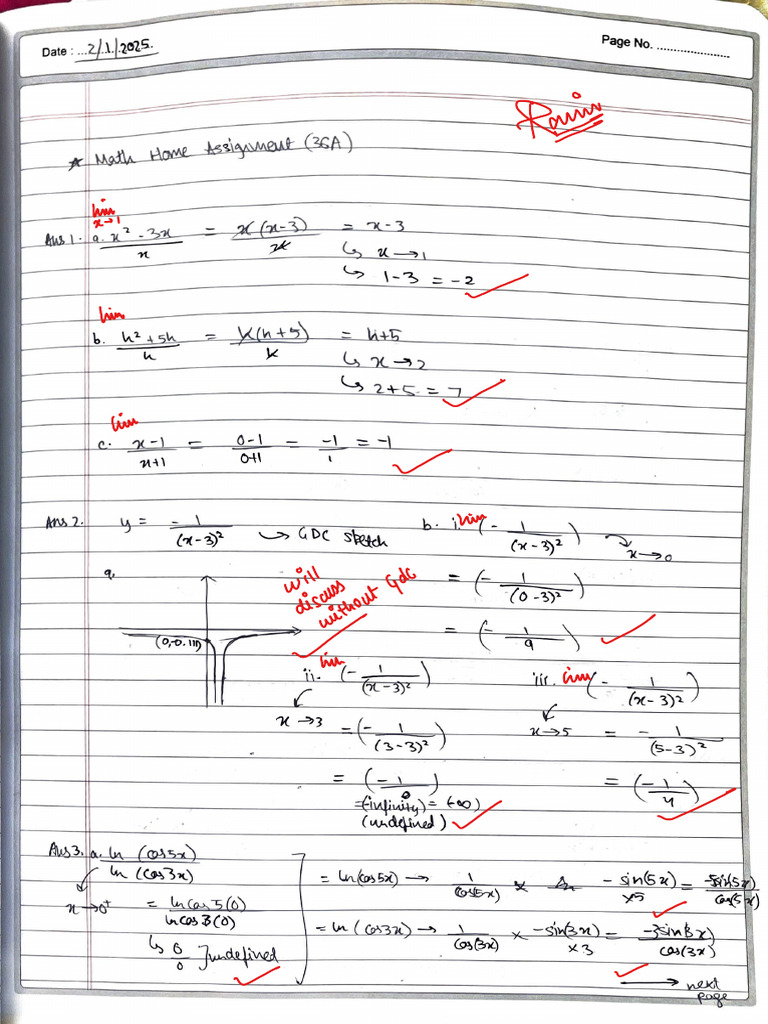 Date : ...2/1/2025.
Page No. ......................
Romin
* Math Home Assignment (36A)
lim
x→1
Ans 1. a. x² - 3x / x = x(x-3) / x = x-3
↳ x→1
↳ 1-3 = -2 ✓
lim
b. h² + 5h / h = h(h+5) / h = h+5
↳ x→2
↳ 2+5 = 7 ✓
lim
c. x-1 / x+1 = 0-1 / 0+1 = -1 / 1 = -1 ✓
Ans 2. y = -1 / (x-3)² ↳ GDC sketch
a.
(0,-0.111)
will
discuss
without GDC
✓
b. i. lim (- 1 / (x-3)²) → x→0
= (- 1 / (0-3)²)
= (- 1 / 9) ✓
ii. lim (- 1 / (x-3)²)
x→3 = (- 1 / (3-3)²)
= (-1 / 0)
= (-infinity) = (-∞)
(undefined) ✓
iii. lim (- 1 / (x-3)²)
x→5 = - 1 / (5-3)²
= (-1 / 4) ✓
Ans 3. a. ln (cos5x) / ln (cos3x)
x→0⁺ = ln cos 5(0) / ln cos 3(0)
↳ 0 / 0 } undefined ✓
= ln(cos5x) → 1 / cos(5x) × -sin(5x) ×5 = -5sin(5x) / cos(5x) ✓
= ln (cos3x) → 1 / cos(3x) × -sin(3x) ×3 = -3sin(3x) / cos(3x) ✓
→ next
page